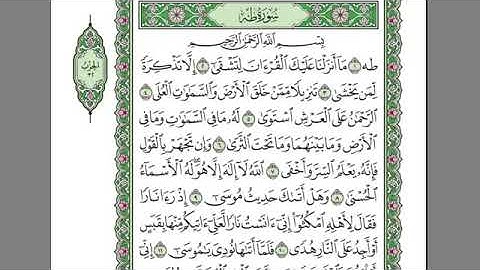 سُورَةُ طه
بِسْمِ ٱللَّهِ ٱلرَّحْمَٰنِ ٱلرَّحِيمِ
طه ١ مَآ أَنزَلْنَا عَلَيْكَ ٱلْقُرْءَانَ لِتَشْقَىٰٓ ٢ إِلَّا تَذْكِرَةً
لِّمَن يَخْشَىٰ ٣ تَنزِيلًا مِّمَّنْ خَلَقَ ٱلْأَرْضَ وَٱلسَّمَٰوَٰتِ ٱلْعُلَى ٤
ٱلرَّحْمَٰنُ عَلَى ٱلْعَرْشِ ٱسْتَوَىٰ ٥ لَهُۥ مَا فِى ٱلسَّمَٰوَٰتِ وَمَا فِى
ٱلْأَرْضِ وَمَا بَيْنَهُمَا وَمَا تَحْتَ ٱلثَّرَىٰ ٦ وَإِن تَجْهَرْ بِٱلْقَوْلِ
فَإِنَّهُۥ يَعْلَمُ ٱلسِّرَّ وَأَخْفَى ٧ ٱللَّهُ لَآ إِلَٰهَ إِلَّا هُوَ لَهُ ٱلْأَسْمَآءُ
ٱلْحُسْنَىٰ ٨ وَهَلْ أَتَىٰكَ حَدِيثُ مُوسَىٰٓ ٩ إِذْ رَءَا نَارًا
فَقَالَ لِأَهْلِهِ ٱمْكُثُوٓا۟ إِنِّىٓ ءَانَسْتُ نَارًا لَّعَلِّىٓ ءَاتِيكُم مِّنْهَا بِقَبَسٍ
أَوْ أَجِدُ عَلَى ٱلنَّارِ هُدًى ١٠ فَلَمَّآ أَتَىٰهَا نُودِىَ يَٰمُوسَىٰٓ ١١ إِنِّىٓ